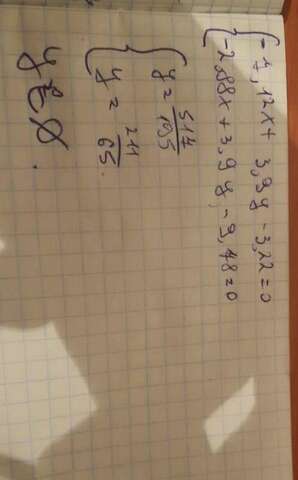 -7,12x + 3,9y - 3,22 = 0
-2,88x + 3,9y - 9,48 = 0
y = 517/195
y = 211/65
y ∈ ∅.